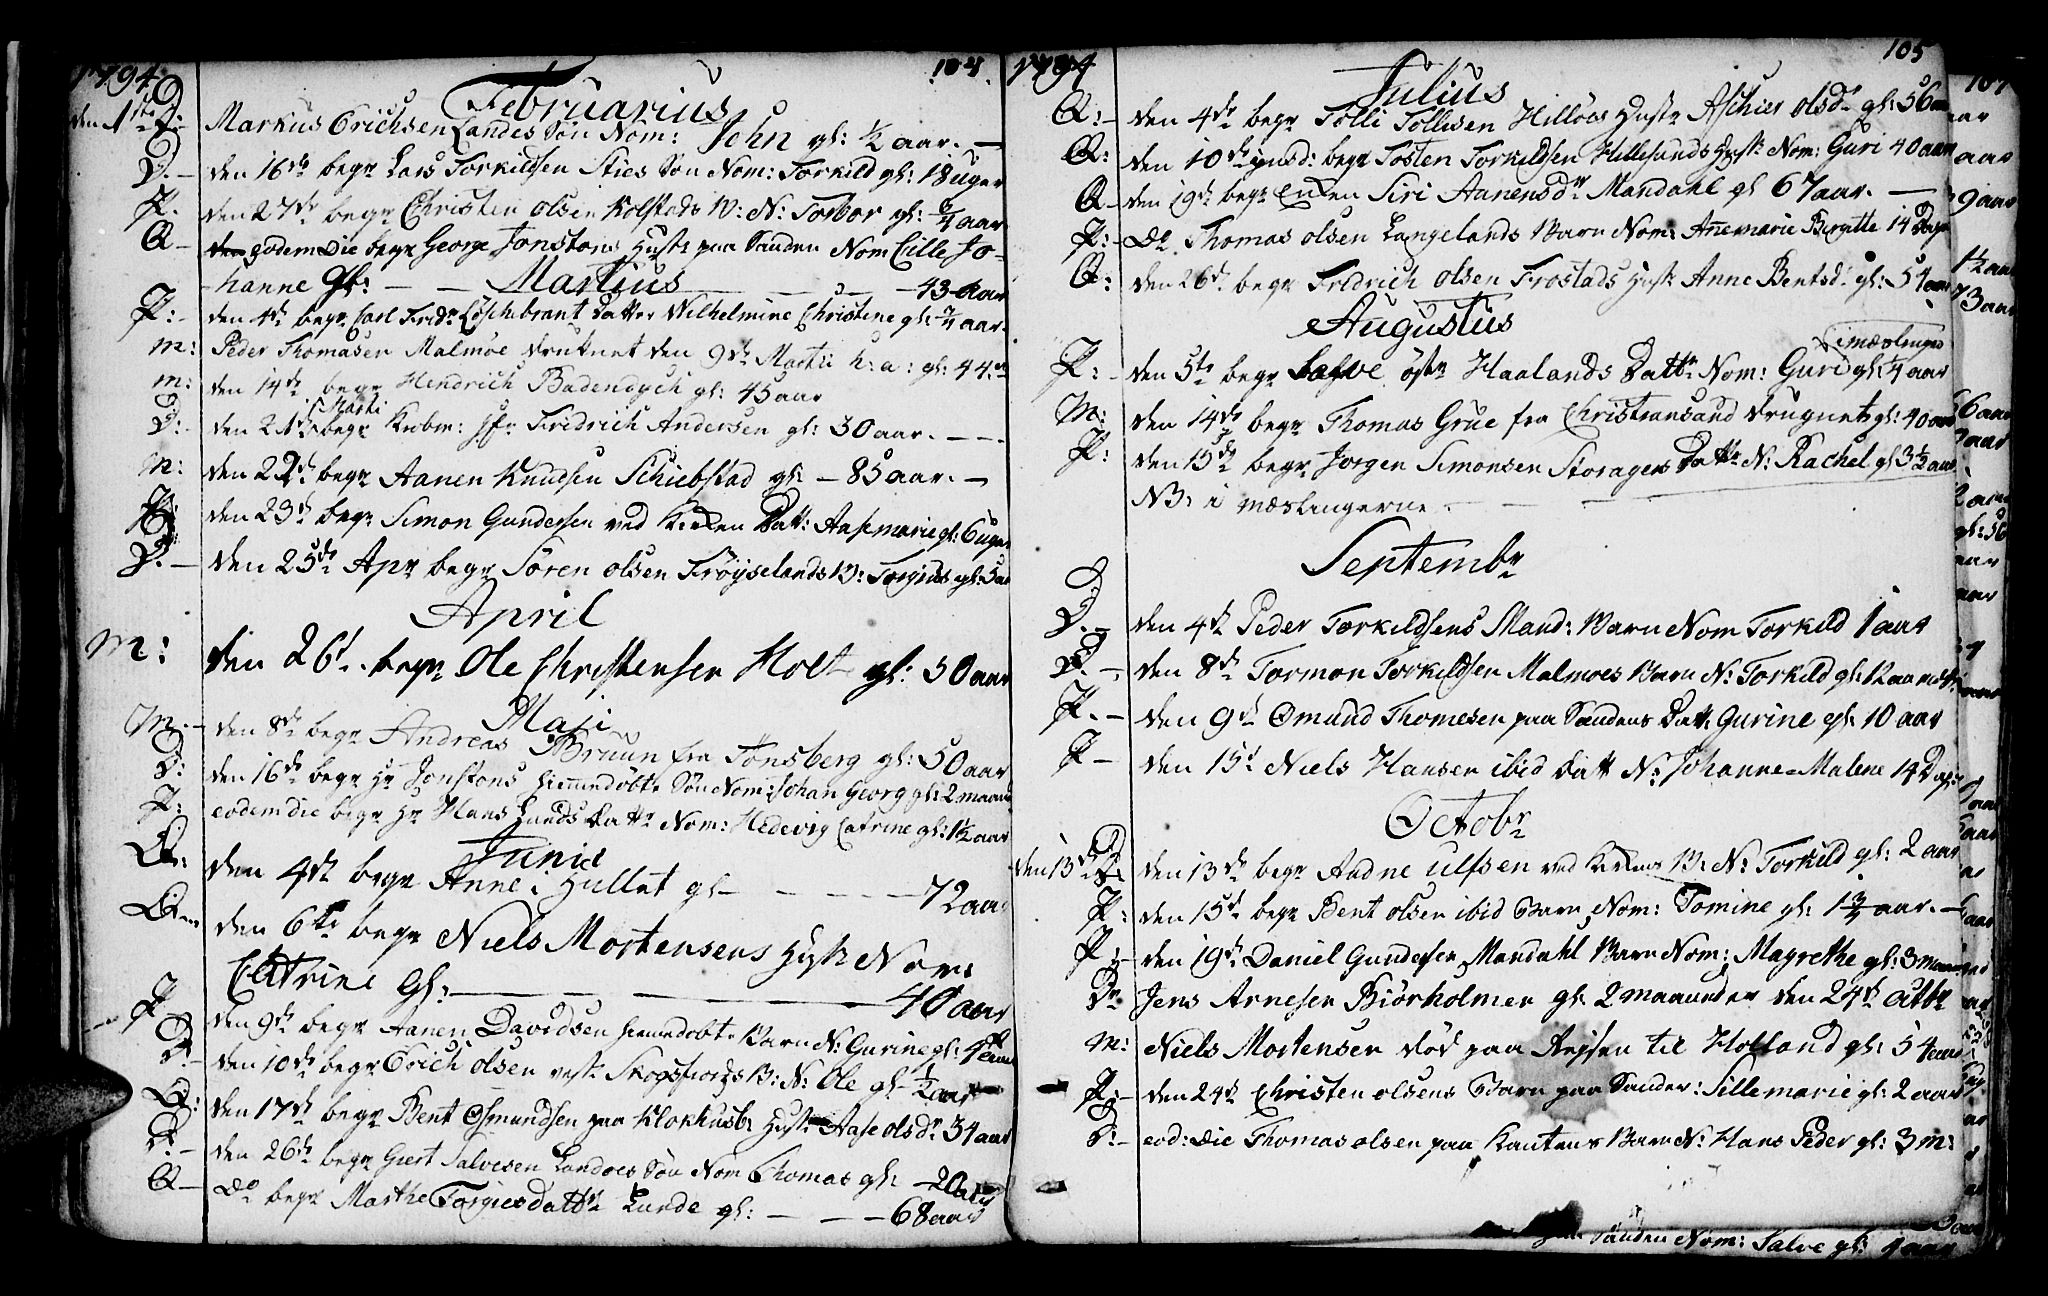 1794. 104.
Februarius
den 1ste D:- Markus Erichsen Landes Søn Nom: John gl: 1/2 aar.
D.- den 16de begr Lars Torkildsen Sties Søn Nom: Torkild gl: 18 uger
P. den 27de begr Christen Olsen Kolstads B: N: Torbor gl: 6/4 aar
Q- eodem Die begr George Jonstons Hustr paa Sanden Nom Cille Jo-
hanne gl: - - 43 aar
Martius
P:- den 4de begr Carl Fridr Löschebrant Datter Wilhelmine Christine gl: 7/4 aar.
M: Peder Thomasen Malmøe druknet den 9de Martii h: a: gl: 44 aar
M: den 14de begr Hendrich Badendych gl: 45 aar
D:- den 21de Marti begr Kiøbm: Hr Fridrich Andersen gl: 30 aar.
M: den 22de begr Aanen Knudsen Schiebstad gl: - 85 aar.
P: den 23d begr Simon Gundersen ved Kirken Datt: Aasemarie gl: 6 uger
D.- den 25de Apr begr Sören Olsen Fröyselands B: Torgius gl: 5 aar
April
M: den 26d. begr Ole Christensen Holt gl: 50 aar
Maji
M.- den 8de begr Andreas Bruun fra Tönsberg gl: 50 aar
D: den 16de begr Hr Jonstons hiemmedöbte Søn Nom: Johan Georg gl: 2 maan
P: eodem die begr Hr Hans Lunds Datter Nom: Hedevig Catrine gl: 1 1/2 aar
Junii
Q: den 4de begr Anne Hullet gl - - - - 72 aar
Q.. den 6te begr Niels Mortensens Hust Nom:
Catrine gl: - - - 40 aar
P- den 9de begr Aanen Davidsen hiemedobte Barn N: Gurine gl:
D- den 10de begr Erich Olsen vest Skogsfiords B: N: Ole gl 1/2 aar
Q: den 17de begr Bent Osmundsen paa Klokhusb: Hustr Aase Olsdr 34 aar
D:- den 26de begr Giert Salvesen Landoes Søn Nom Thomas gl: 20 aar
Q- Do begr Marthe Torgiesdattr Lunde gl: - - 68 aar
1794 105
Julius
Q:- den 4de begr Tolli Tollisen Hilløes Hustr Aschier Olsdr gl: 56 aar
Q: den 10de ejusd: begr Tosten Torkildsen Hillesunds Hust Nom: Guri 40 aar
Q- den 19de begr Enken Siri Aanensdr Mandahl gl 67 aar.
P:- Do Thomas Olsen Langelands Barn Nom: Annemarie Birgitte 14 Dage
Q: den 26d. begr Fridrich Olsen Frostads Hust Anne Bentsd: gl: 54 aar
Augustus
i mæslinger
P:- den 5te begr östr Haalands Dattr Nom: Guri gl: 4 aar
M: den 14de begr Thomas Grue fra Christiansand drugnet gl: 40 aar
P: den 15de begr Jorgen Simonsen Storagers Dattr N: Rachel gl 3 1/2 aar
NB: i mæslingerne.
Septembr
D.- den 4de Peder Torkildsens Mand: Barn Nom Torkild 1 aar
D.- den 8de Tormon Torkildsen Malmoes Barn N: Torkild gl:
P.- den 9de Osmund Thomesen paa Sandens Datt: Gurine gl: 10 aar
P- den 15d Niels Hansen ibid Datt N: Johanne-Malene 14 Dage
Octobr
den 13de D: den 13de begr Audne Ulfsen ved Kirkens B: N: Torkild gl: 2 aar
P: den 15d. begr Bent Olsen ibid Barn Nom: Tomine gl: 1 3/4 aar.
P:- den 19de Daniel Gundersen Mandahl Barn Nom: Magrethe gl: 3 maan
Dr Jens Arnesen Biörholmen gl: 2 maaneder den 24de Octbr
M: Niels Mortensen död paa Reisen til Holland gl: 54 aar
P:- den 24de Christen Olsens Barn paa Sanden: Sillemarie gl: 2 aar
D:- eod: Die Thomas Olsen paa Kautens Barn N: Hans Peder gl: 3 m:
Sanden Nom: Salve gl: 4 aar
107